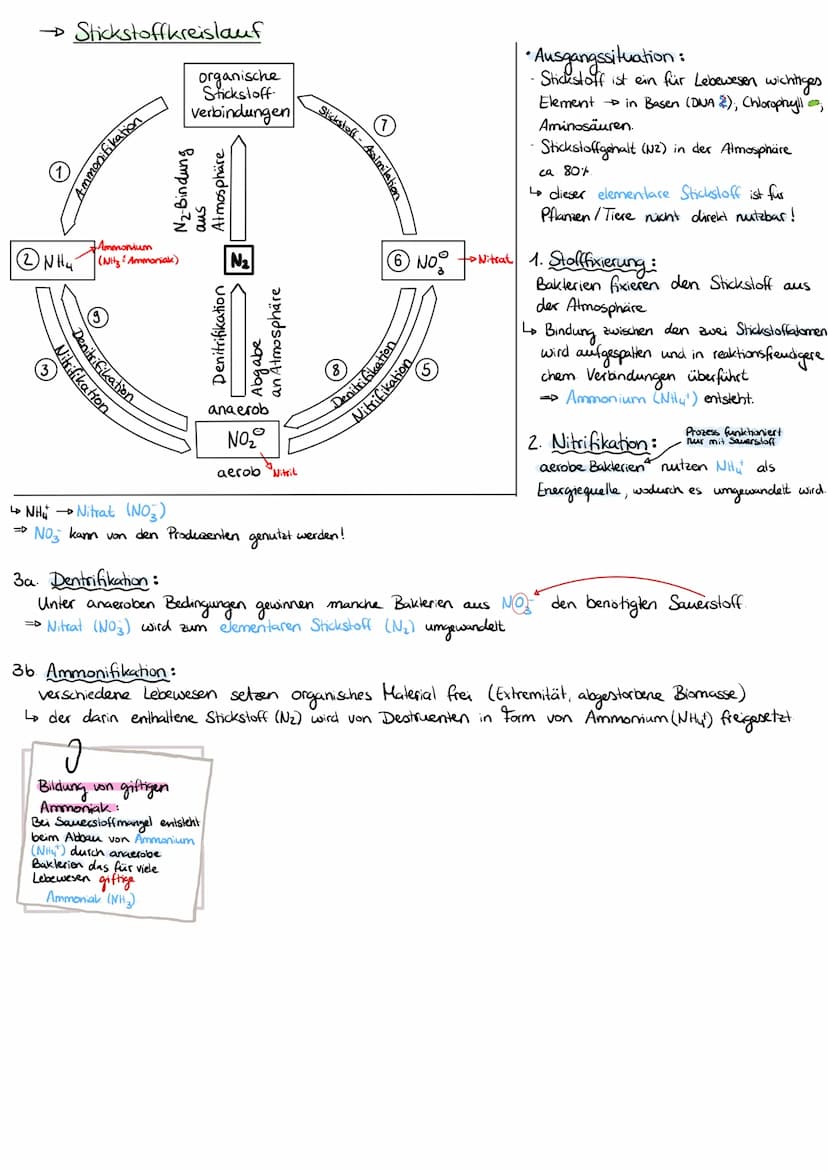 → Stickstoffkreislauf
organische
Stickstoff-
verbindungen
① Ammonifikation
N₂-Bindung
aus
Atmosphäre
Stickstoff-Assimilation
⑦
② NH₄
Ammonium
(NH₃: Ammoniak)
N₂
⑥ NO₃⊖ → Nitrat
⑨ Denitrifikation
③ Nitrifikation
Denitrifikation
Abgabe
an Atmosphäre
⑧ Denitrifikation
Nitrifikation ⑤
anaerob
NO₂⊖
aerob
Nitrit
• Ausgangssituation:
- Stickstoff ist ein für Lebewesen wichtiges
Element → in Basen (DNA), Chlorophyll,
Aminosäuren.
- Stickstoffgehalt (N2) in der Atmosphäre
ca. 80%
↳ dieser elementare Stickstoff ist für
Pflanzen/Tiere nicht direkt nutzbar!
1. Stofffixierung:
Bakterien fixieren den Stickstoff aus
der Atmosphäre
↳ Bindung zwischen den zwei Stickstoffatomen
wird aufgespalten und in reaktionsfreudigere
chem Verbindungen überführt
⇒ Ammonium (NH₄⁺) entsteht.
2. Nitrifikation:
Prozess funktioniert
nur mit Sauerstoff
aerobe Bakterien nutzen NH₄⁺ als
Energiequelle, wodurch es umgewandelt wird.
↳ NH₄⁺ → Nitrat (NO₃⁻)
⇒ NO₃⁻ kann von den Produzenten genutzt werden!
3a. Dentrifikation:
Unter anaeroben Bedingungen gewinnen manche Bakterien aus NO₃⁻ den benötigten Sauerstoff.
⇒ Nitrat (NO₃⁻) wird zum elementaren Stickstoff (N₂) umgewandelt
3b Ammonifikation:
verschiedene Lebewesen setzen organisches Material frei (Extremität, abgestorbene Biomasse)
↳ der darin enthaltene Stickstoff (N₂) wird von Destruenten in Form von Ammonium (NH₄⁺) freigesetzt
Bildung von giftigen
Ammoniak:
Bei Sauerstoffmangel entsteht
beim Abbau von Ammonium
(NH₄⁺) durch anaerobe
Bakterien das für viele
Lebewesen giftige
Ammoniak (NH₃)